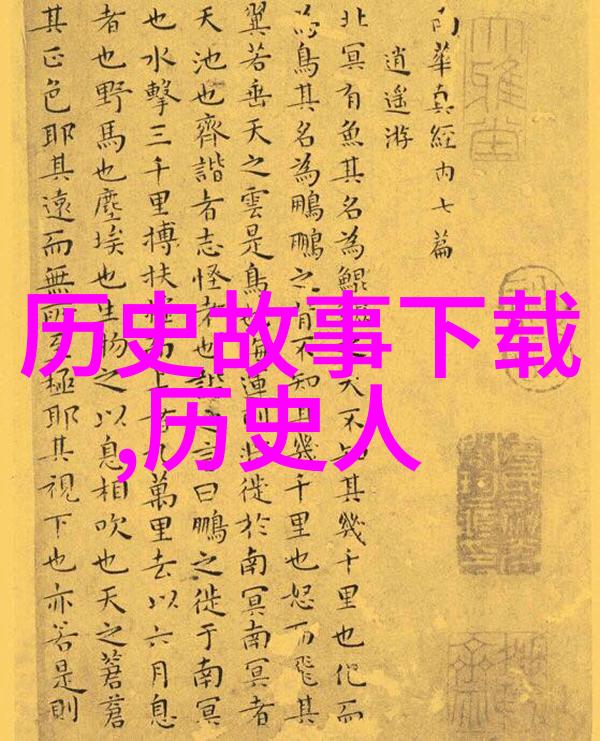 历史故事下载
,历史人
南華真經内七篇
逍遙游
北冥有魚其名為鯤鯤之大不知其幾千里也化而
為鳥其名為鵬鵬之背不知其幾千里也怒而飛其
翼若垂天之雲是鳥也海運則將徙於南冥南冥者
天池也齊諧者志怪者也諧之言曰鵬之徙于南冥
也水擊三千里搏扶搖而上者九萬里去以六月息
者也野馬也塵埃也生物之以息相吹也天之蒼蒼
其正色耶其遠而無所至極耶其視下也亦若是則
大雅堂